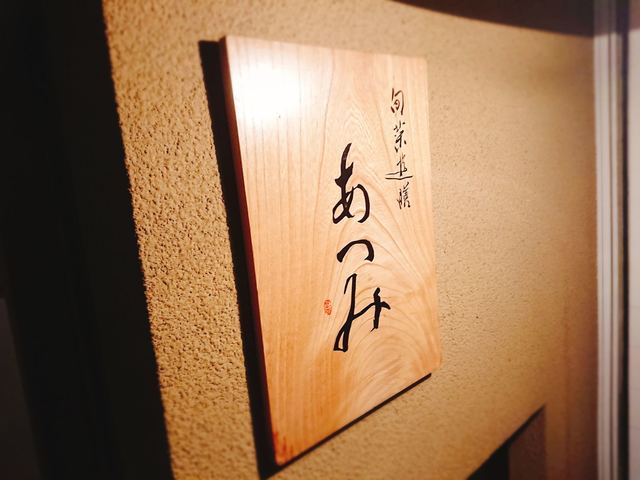 旬菜遊膳
あつみ